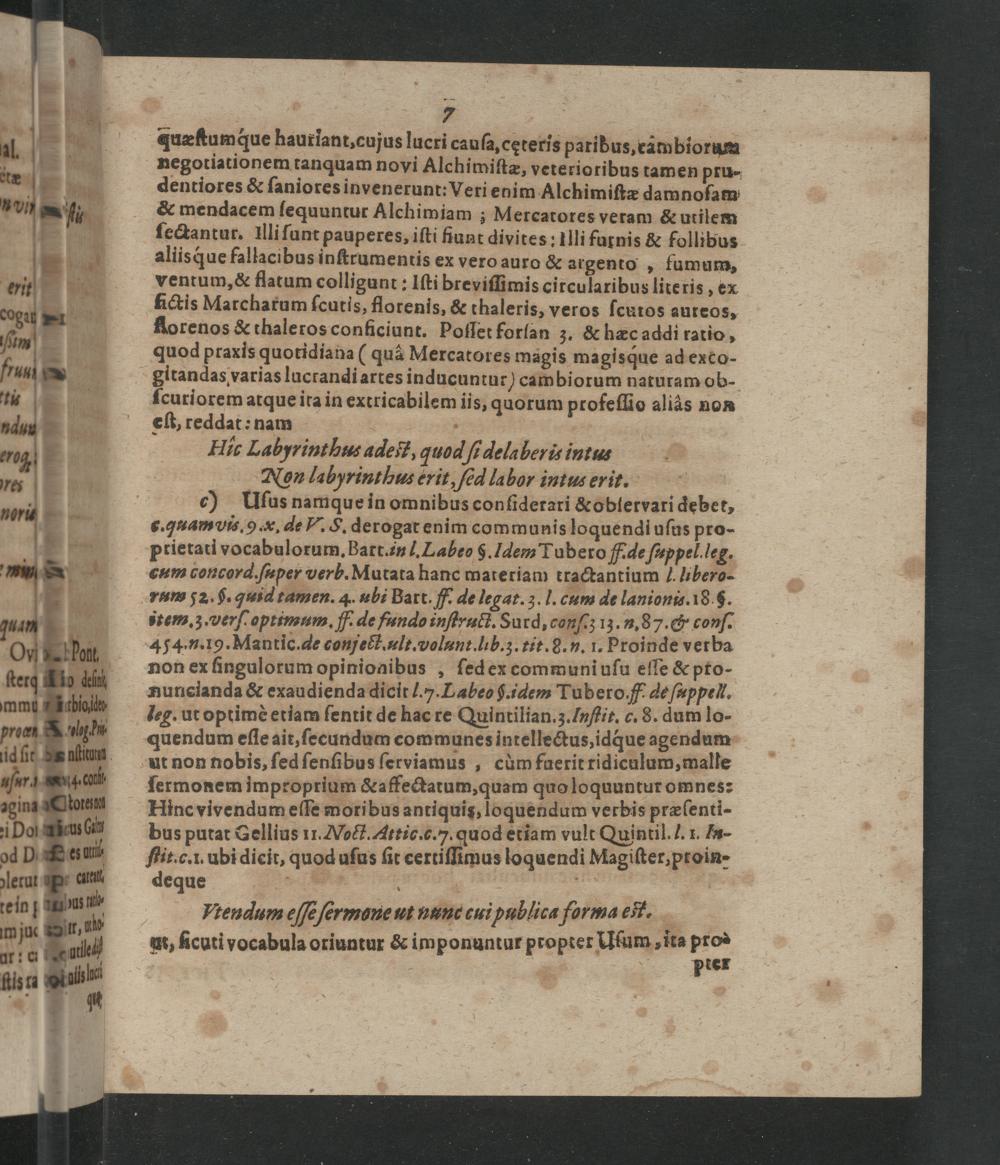 7
quæstumq́ue hauriant, cujus lucri causa, cęteris paribus, cambiorum
negotiationem tanquam novi Alchimistæ, veterioribus tamen pru-
dentiores & saniores invenerunt: Veri enim Alchimistæ damnosam
& mendacem sequuntur Alchimiam ; Mercatores veram & utilem
sectantur. Illi sunt pauperes, isti fiunt divites : Illi furnis & follibus
aliisq́ue fallacibus instrumentis ex vero auro & argento , fumum,
ventum, & flatum colligunt : Isti brevissimis circularibus literis, ex
fictis Marcharum scutis, florenis, & thaleris, veros scutos aureos,
florenos & thaleros conficiunt. Posset forsan 3. & hæc addi ratio,
quod praxis quotidiana ( quâ Mercatores magis magisq́ue ad exco-
gitandas varias lucrandi artes inducuntur) cambiorum naturam ob-
scuriorem atque ita in extricabilem iis, quorum professio aliâs non
est, reddat : nam
Hîc Labyrinthus adest, quod si delaberis intus
Non labyrinthus erit, sed labor intus erit.
c) Usus namque in omnibus considerari & observari debet,
c. quamvis. 9. x. de V. S. derogat enim communis loquendi usus pro-
prietati vocabulorum. Bart. in l. Labeo §. Idem Tubero ff. de suppel. leg.
cum concord. super verb. Mutata hanc materiam tractantium l. libero-
rum 52. §. quid tamen. 4. ubi Bart. ff. de legat. 3. l. cum de lanionis. 18. §.
item. 3. vers. optimum. ff. de fundo instruct. Surd, cons. 313. n. 87. & cons.
454. n. 19. Mantic. de conject. ult. volunt. lib. 3. tit. 8. n. 1. Proinde verba
non ex singulorum opinionibus , sed ex communi usu esse & pro-
nuncianda & exaudienda dicit l. 7. Labeo §. idem Tubero. ff. de suppell.
leg. ut optimè etiam sentit de hac re Quintilian. 3. Instit. c. 8. dum lo-
quendum esse ait, secundum communes intellectus, idq́ue agendum
ut non nobis, sed sensibus serviamus , cùm fuerit ridiculum, malle
sermonem improprium & affectatum, quam quo loquuntur omnes:
Hinc vivendum esse moribus antiquis, loquendum verbis præsenti-
bus putat Gellius 11. Noct. Attic. c. 7. quod etiam vult Quintil. l. 1. In-
stit. c. 1. ubi dicit, quod usus sit certissimus loquendi Magister, proin-
deque
Vtendum esse sermone ut nunc cui publica forma est.
ut, sicuti vocabula oriuntur & imponuntur propter Usum, ita pro-
pter